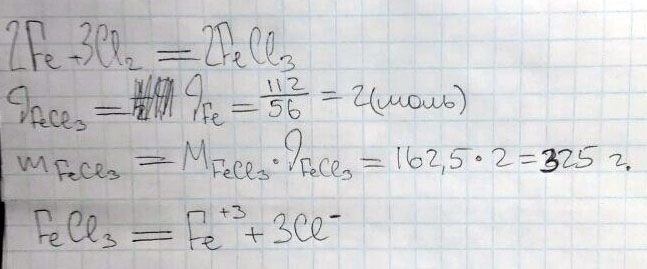 2Fe + 3Cl₂ = 2FeCl₃
ϑ_FeCl₃ = ϑ_Fe = 112/56 = 2(моль)
m_FeCl₃ = M_FeCl₃ · ϑ_FeCl₃ = 162,5 · 2 = 325 г.
FeCl₃ = Fe⁺³ + 3Cl⁻